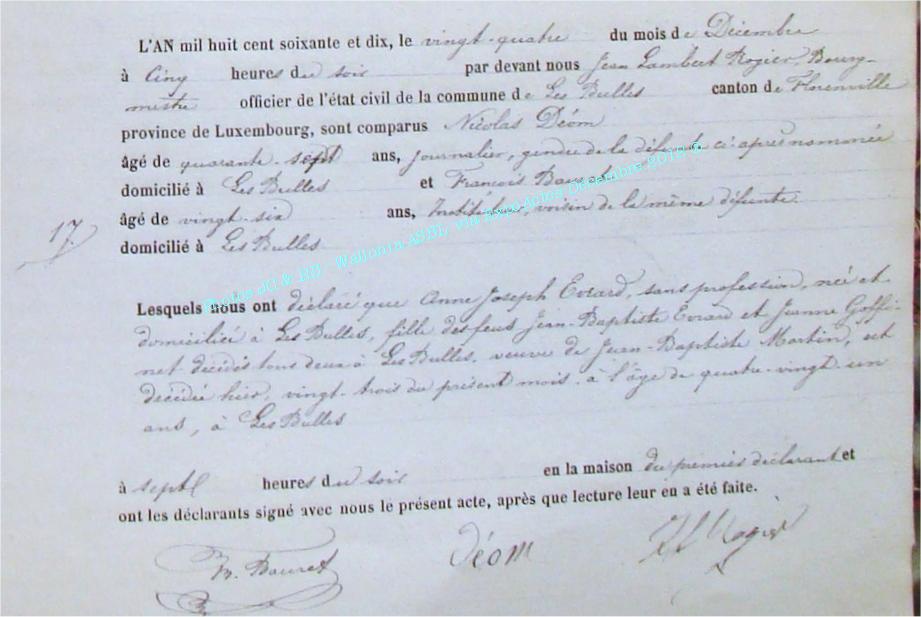 L'AN mil huit cent soixante et dix, le vingt-quatre du mois de Décembre
à Cinq heures du soir par devant nous Jean Lambert Rogier, Bourg-
mestre officier de l'état civil de la commune de Les Bulles canton de Florenville
province de Luxembourg, sont comparus Nicolas Déom
âgé de quarante-sept ans, journalier, gendre de la défunte ci-après nommée
domicilié à Les Bulles et François Bauret
âgé de vingt-six ans, Instituteur, voisin de la même défunte
17.
domicilié à Les Bulles
Photos JC & BB - Wallonia ASBL, via ExpoActes Décembre 2012 ©
Lesquels nous ont déclaré que Anne Joseph Evrard, sans profession, née et
domiciliée à Les Bulles, fille des feus Jean-Baptiste Evrard et Jeanne Goffi-
net décédés tous deux à Les Bulles, veuve de Jean-Baptiste Martin, est
décédée hier, vingt-trois du présent mois, à l'âge de quatre-vingt un
ans, à Les Bulles
à sept heures du soir en la maison du premier déclarant et
ont les déclarants signé avec nous le présent acte, après que lecture leur en a été faite.
Bauret Déom Rogier